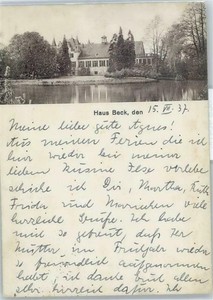 Haus Beck, den 15. VI. 37.
Meine liebe gute Agnes!
Aus meinen Ferien die ich
hier wieder bei meiner
lieben Cousine Else verlebe
schicke ich Dir, Martha, Käthe
Frida und Mariechen viele
herzliche Grüße. Ich habe
mich so gefreut, daß der
Mutter, im Frühjahr wieder
so freundlich aufgenommen
habt, ich danke Euch allen
sehr herzlich dafür. Ich